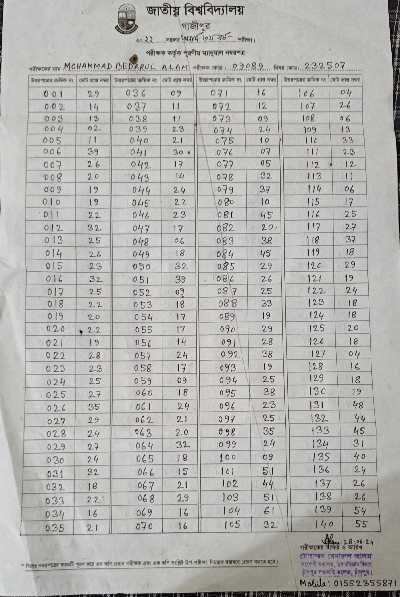 জাতীয় বিশ্ববিদ্যালয়
গাজীপুর
পরীক্ষক কর্তৃক পূরণীয় ম্যানুয়াল নম্বরপত্র
পরীক্ষকের নাম MOHAMMAD BEDARUL ALAM পরীক্ষক কোড: 09089 বিষয় কোড: 232507
উত্তরপত্রের ক্রমিক নং মোট প্রাপ্ত নম্বর উত্তরপত্রের ক্রমিক নং মোট প্রাপ্ত নম্বর উত্তরপত্রের ক্রমিক নং মোট প্রাপ্ত নম্বর উত্তরপত্রের ক্রমিক নং মোট প্রাপ্ত নম্বর
001 29 036 09 071 16 106 04
002 14 037 11 072 12 107 26
003 13 038 11 073 09 108 06
004 02 039 23 074 24 109 13
005 11 040 21 075 10 110 33
006 39 041 30 076 07 111 23
007 26 042 17 077 05 112 12
008 20 043 14 078 32 113 11
009 19 044 24 079 37 114 06
010 19 045 22 080 10 115 17
011 22 046 23 081 45 116 25
012 32 047 17 082 20 117 27
013 25 048 06 083 38 118 37
014 26 049 18 084 45 119 18
015 23 050 32 085 29 120 29
016 32 051 39 086 26 121 19
017 25 052 09 087 25 122 24
018 22 053 18 088 33 123 18
019 20 054 17 089 19 124 18
020 22 055 17 090 29 125 20
021 19 056 14 091 28 126 18
022 28 057 24 092 38 127 04
023 23 058 17 093 19 128 16
024 25 059 09 094 25 129 18
025 27 060 18 095 38 130 29
026 35 061 24 096 23 131 48
027 29 062 21 097 25 132 44
028 24 063 20 098 35 133 45
029 27 064 32 099 24 134 31
030 24 065 18 100 09 135 40
031 32 066 15 101 51 136 24
032 18 067 21 102 44 137 26
033 22 068 29 103 51 138 26
034 16 069 16 104 61 139 54
035 21 070 16 105 32 140 55
28-06-24
পরীক্ষকের স্বাক্ষর ও তারিখ
Mobile: 01552355871